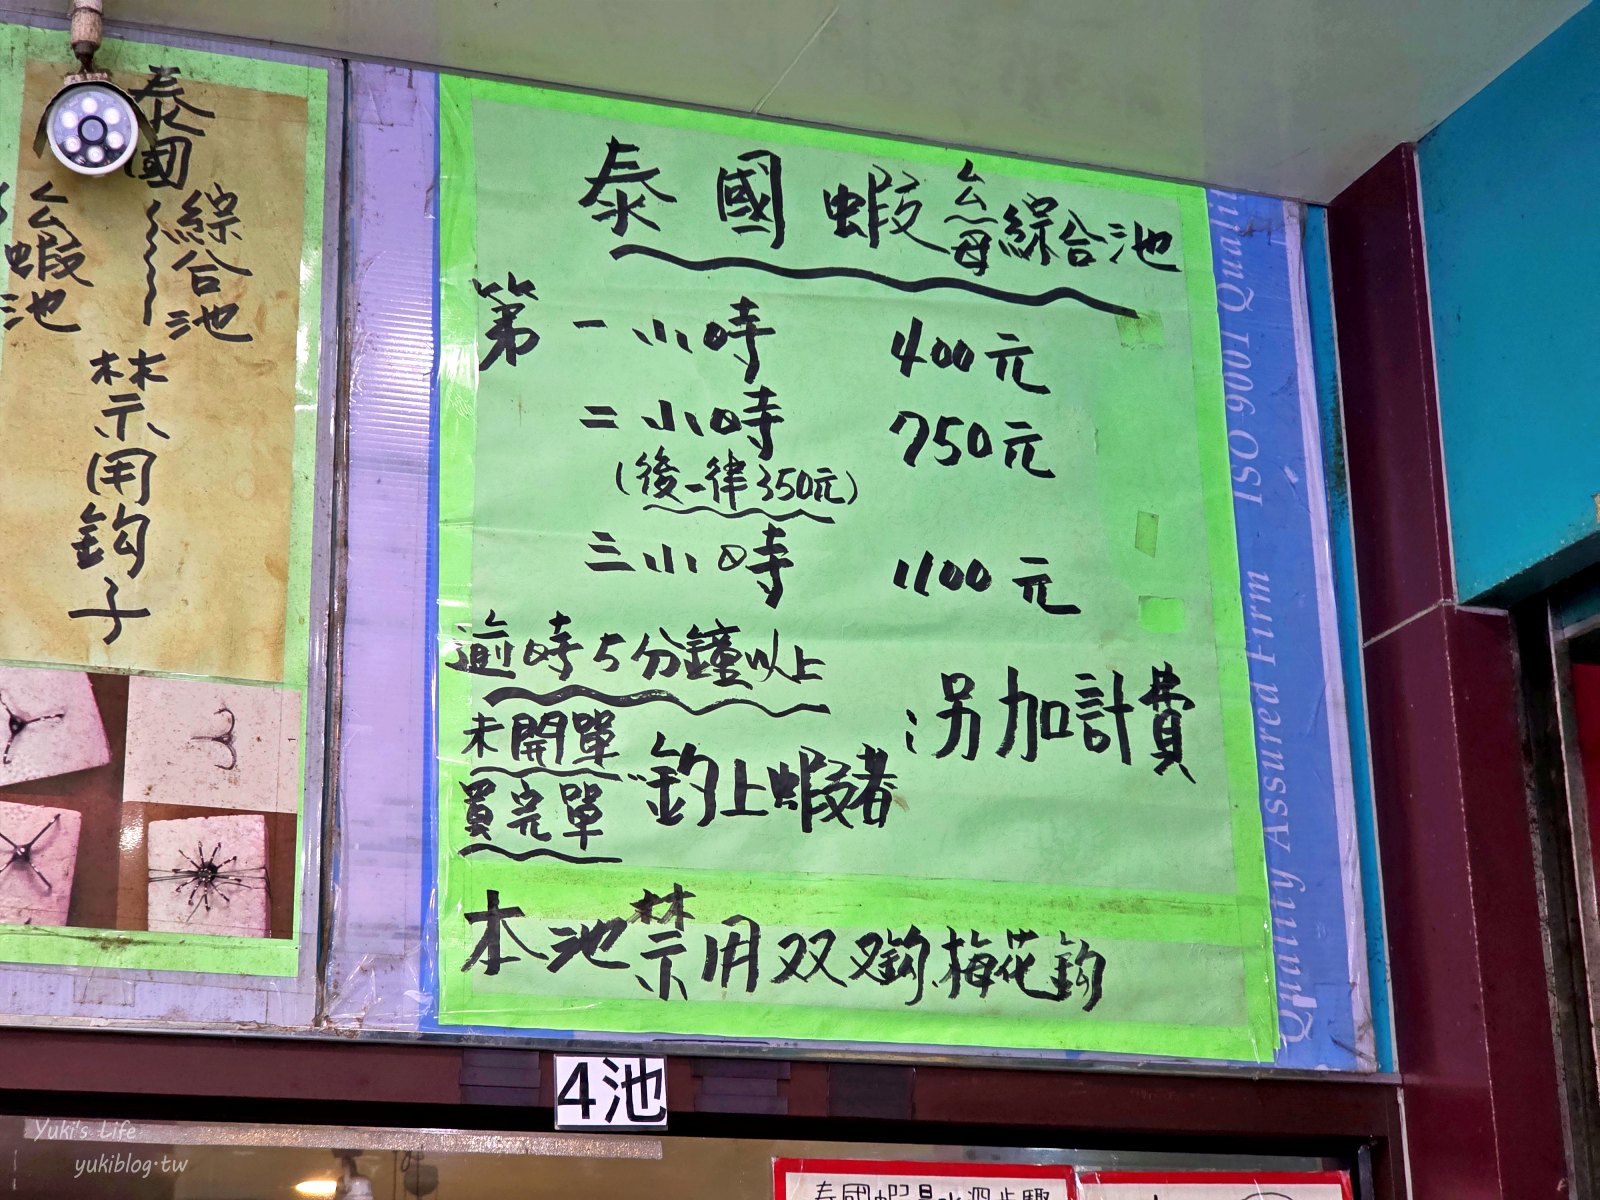 泰國
綜合池
公蝦池
禁用鈎子
泰國蝦公母綜合池
第一小時 400元
二小時 750元
(後一律350元)
三小時 1100元
逾時5分鐘以上
未開單
買完單
釣上蝦者
;另加計費
本池禁用双叉鈎.梅花鈎
4池
ISO 9001 Quali
Quality Assured Firm
Yuki's Life
yukiblog.tw